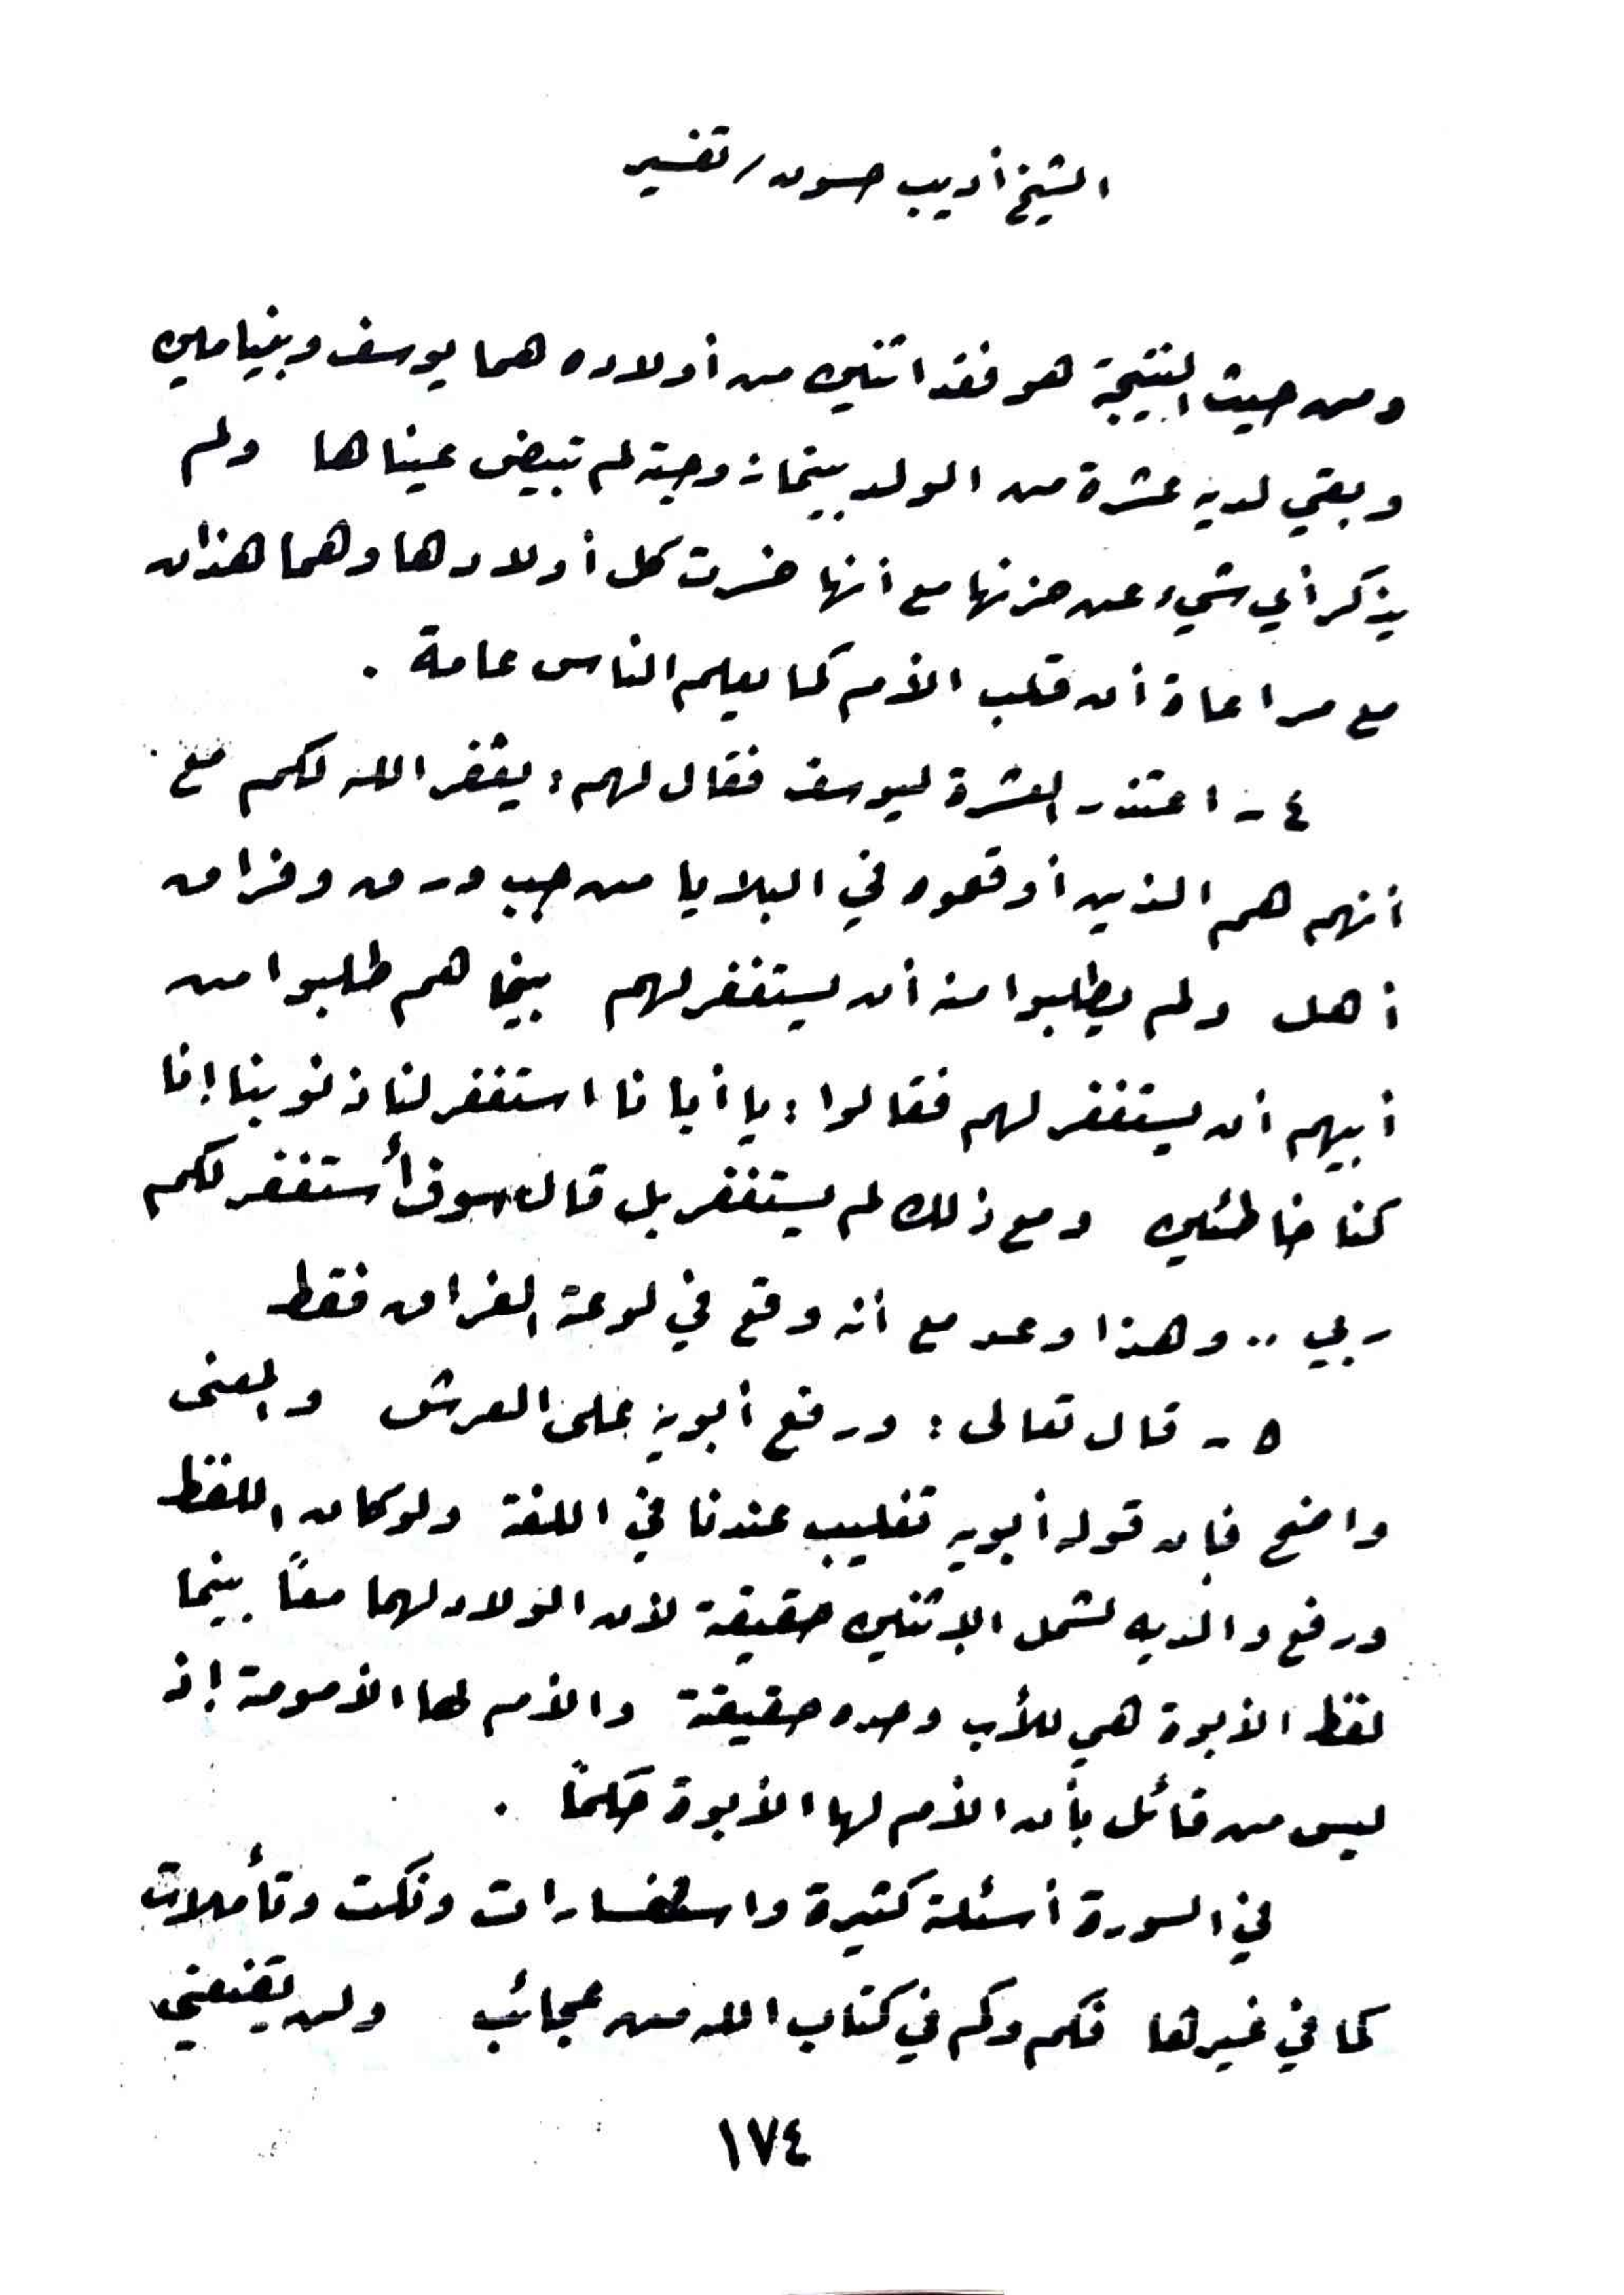 الشيخ أديب حسون / تفسير
ومن حيث النتيجة هو فقد اثنين من أولاده هما يوسف وبنيامين
وبقي لديه عشرة من الولد بينما زوجته لم تبيض عيناها ولم
يذكر أي شيء عن حزنها مع أنها خسرت كل أولادها وهما هذان
مع مراعاة أن قلب الأم كما يعلم الناس عامة .
٤ - اعتذر العشرة ليوسف فقال لهم : يغفر الله لكم مع
أنهم هم الذين أوقعوه في البلايا من جب ورق وفراق
أهل ولم يطلبوا منه أن يستغفر لهم بينما هم طلبوا من
أبيهم أن يستغفر لهم فقالوا : يا أبانا استغفر لنا ذنوبنا إنا
كنا خاطئين ومع ذلك لم يستغفر بل قال سوف أستغفر لكم
ربي .. وهذا وعد مع أنه وقع في لوعة الفراق فقط
٥ - قال تعالى : ورفع أبويه على العرش والمعنى
واضح فإن قوله أبويه تغليب عندنا في اللغة ولو كان اللفظ
ورفع والديه لشمل الإثنين حقيقة لأن الولاد لهما معاً بينما
لفظ الأبوة هي للأب وحده حقيقة والأم لها الأمومة إذ
ليس من قائل بأن الأم لها الأبوة حكماً .
في السورة أسئلة كثيرة واستفسارات ونكت وتأملات
كما في غيرها فكم وكم في كتاب الله من عجائب ولن تقنعني
١٧٤